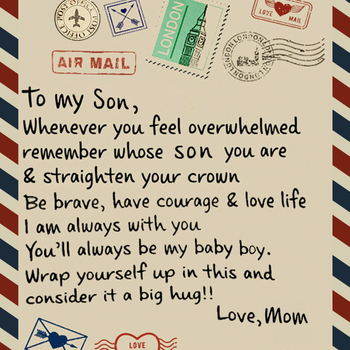 POST OFFICE
POST OFFICE
LONDON
LOVE MAIL
LONDON LONDON
AIR MAIL
To my Son,
Whenever you feel overwhelmed
remember whose son you are
& straighten your crown
Be brave, have courage & love life
I am always with you
You'll always be my baby boy.
Wrap yourself up in this and
consider it a big hug!!
Love, Mom
LOVE